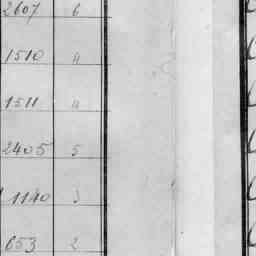 2607 6
1510 4
1511 4
2405 5
1140 3
653 2